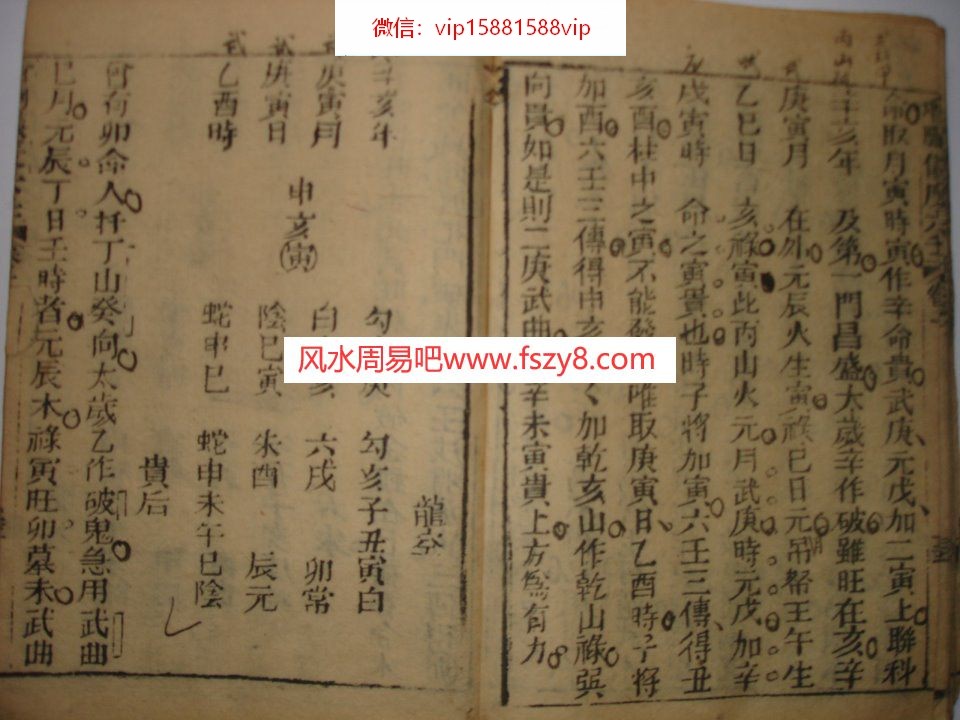 微信：vip15881588vip
风水周易吧www.fszy8.com
命取月寅時寅作辛命貴武庚元戊加二寅上聯科
辛亥年　及第一門昌盛太歲辛作破雖旺在亥辛
庚寅月　在外元辰火生寅祿巳日元帝王午生
乙巳日　亥祿寅此丙山火元月武庚時元戊加辛
戊寅時　命之寅貴也時子將加寅六壬三傳得丑
亥酉柱中之寅不能發唯取庚寅日乙酉時子將
加酉六壬三傳得申亥加乾亥山作乾山祿與
向貴如是則二庚武曲辛未寅貴上方爲有力
辛亥年
庚寅月
庚寅日
乙酉時
申亥寅
勾
陰巳寅
蛇申巳
龍
勾亥子丑寅白
六戌　卯常
朱酉　辰元
蛇申未午巳陰
貴后
何有卯命人扦丁山癸向太歲乙作破鬼急用武曲
巳月元辰丁日壬時者元辰木祿寅旺卯墓未武曲